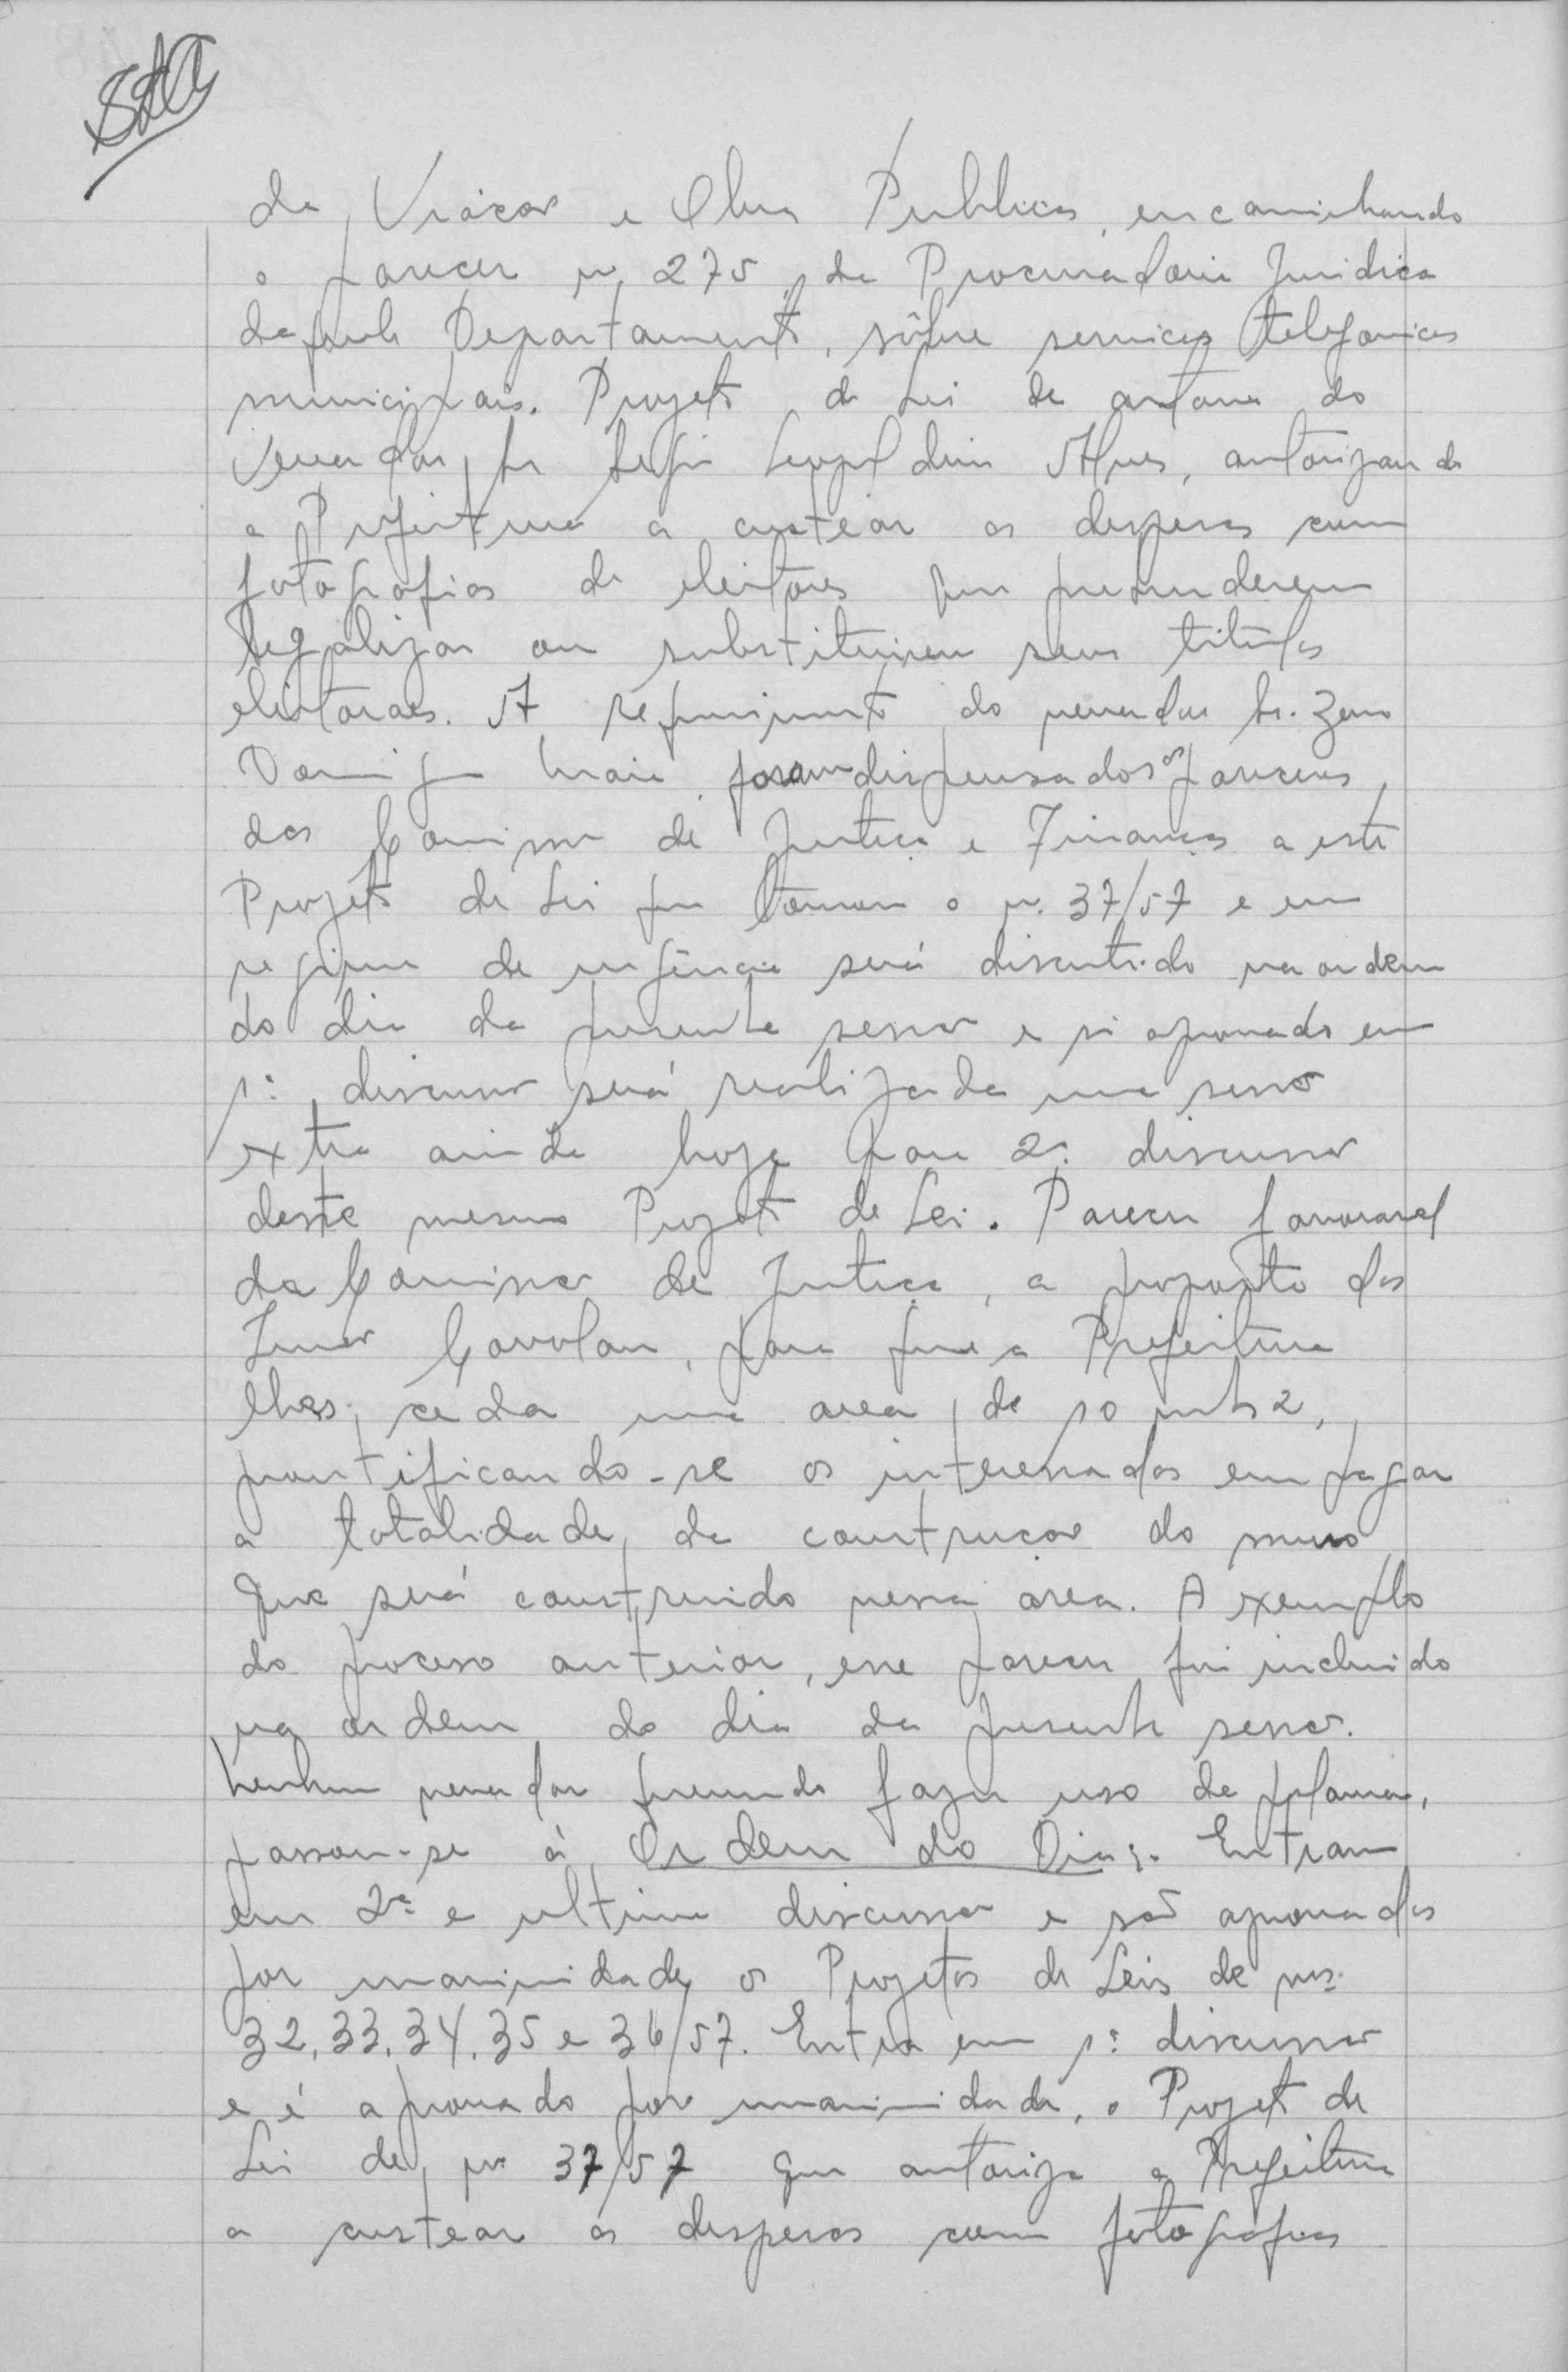 da Viação e Obras Publicas, encaminhando
o parecer n. 275, da Procuradoria Juridica
daquele Departamento, sôbre serviços telefonicos
municipais. Projeto de Lei de autoria do
vereador, sr. Leopoldino Alves, autorizando
a Prefeitura a custear as despesas com
fotografias de eleitores que pretenderem
legalizar ou substituirem seus titulos
eleitoraes. A requerimento do vereador sr. Zeno
Maia foram dispensados os pareceres,
das Comissão de Justiça e Finanças a este
Projeto de Lei que tomou o n. 37/57 e em
regime de urgência será discutido na ordem
do dia da presente sessão e si aprovado em
1ª discussão será realizada uma sessão
extra ainda hoje para 2ª discussão
deste mesmo Projeto de Lei. Parecer favoravel
da Comissão de Justiça, a proposta dos
Irmãos, para que a Prefeitura
lhes ceda uma area de 10 mts 2,
prontificando-se os interessados em pagar
a totalidade da construção do muro
que será construido nessa area. A exemplo
do processo anterior, esse parecer foi incluido
na ordem do dia da presente sessão.
Nenhum vereador querendo fazer uso da palavra,
passou-se à Ordem do Dia:. Entram
em 2ª e ultima discussão e são aprovados
por unanimidade os Projetos de Leis de nrs.
32, 33, 34, 35 e 36/57. Entra em 1ª discussão
e é aprovado por unanimidade, o Projeto de
Lei de nr. 37/57 que autoriza a Prefeitura
a custear as despesas com fotografias